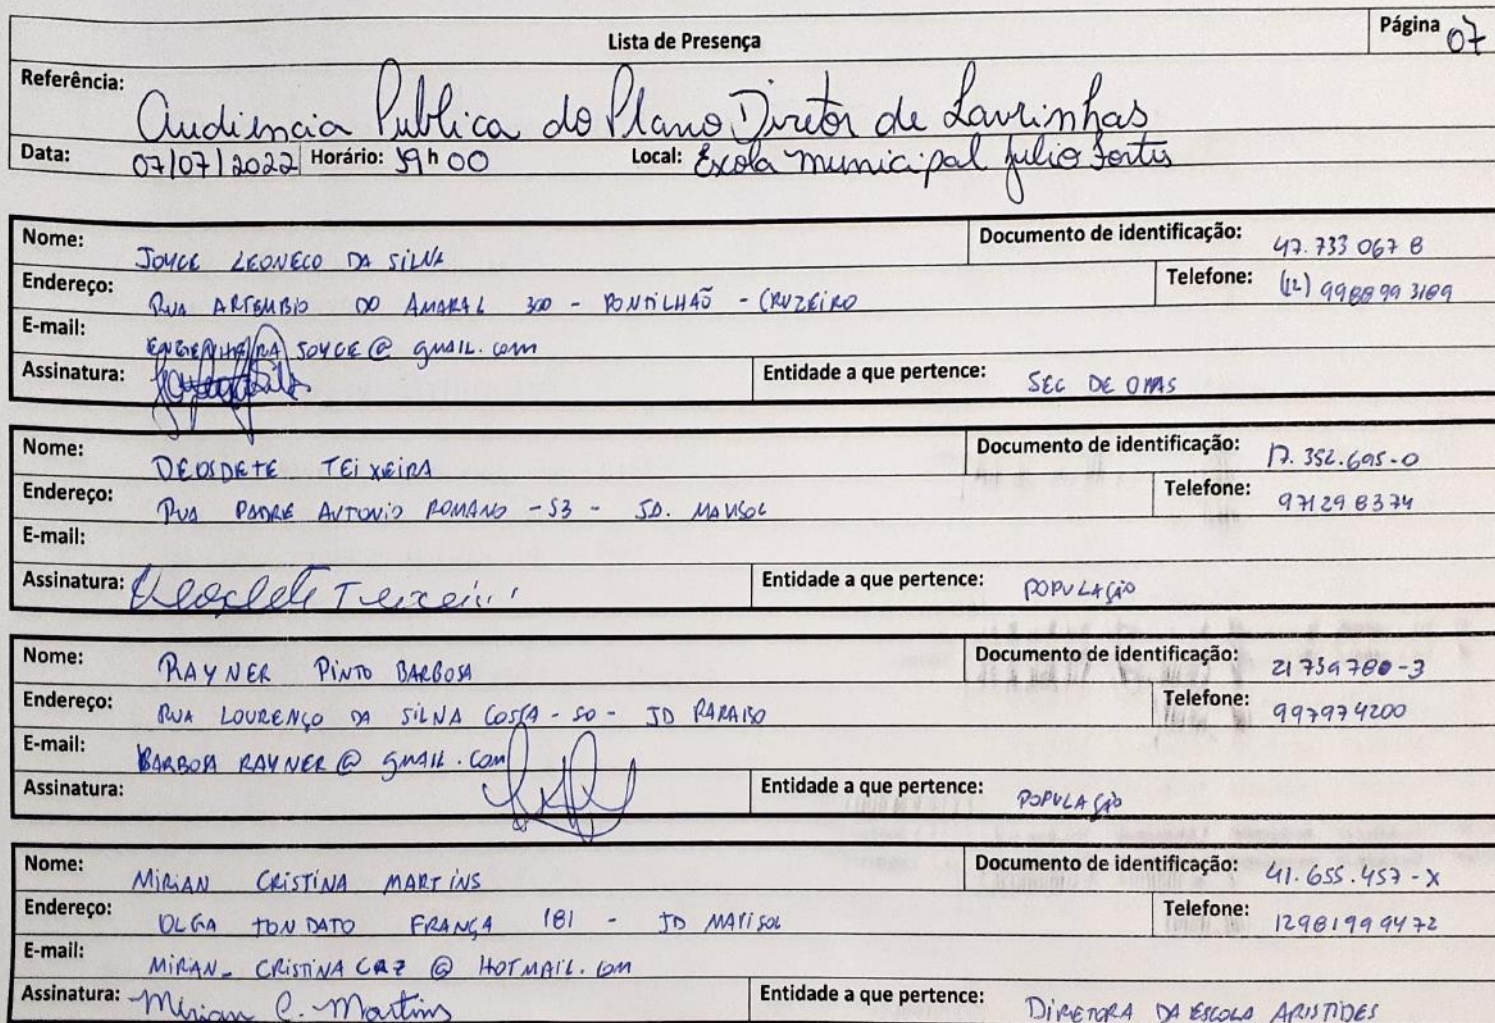 Lista de Presença
Página 07
Referência: Audiencia Publica do Plano Diretor de Lavrinhas
Data: 07/07/2022 Horário: 19h00 Local: Escola Municipal Julio Fortes
Nome: JOYCE LEONECO DA SILVA Documento de identificação: 47.733 067 8
Endereço: RUA ARTEMBIO DO AMARAL 300 - PONTILHAÕ - CRUZEIRO Telefone: (12) 998899 3189
E-mail: ENGENHEIRA JOYCE@ GMAIL.COM
Assinatura: Entidade a que pertence: SEC DE OBRAS
Nome: DEOSDETE TEIXEIRA Documento de identificação: 17.352.695-0
Endereço: RUA PADRE ANTONIO ROMANO - 53 - JD. MARISOL Telefone: 971298374
E-mail:
Assinatura: Deosdete Teixeira Entidade a que pertence: POPULAÇÃO
Nome: RAYNER PINTO BARBOSA Documento de identificação: 21739780-3
Endereço: RUA LOURENÇO DA SILVA COSTA - 50 - JD PARAISO Telefone: 997974200
E-mail: BARBOSA RAYNER@ GMAIL.COM
Assinatura: Entidade a que pertence: POPULAÇÃO
Nome: MIRIAN CRISTINA MARTINS Documento de identificação: 41.655.457-X
Endereço: OLGA TONDATO FRANÇA 181 - JD MARISOL Telefone: 12981999472
E-mail: MIRIAN_CRISTINA CRZ @ HOTMAIL.COM
Assinatura: Mirian C. Martins Entidade a que pertence: DIRETORA DA ESCOLA ARISTIDES